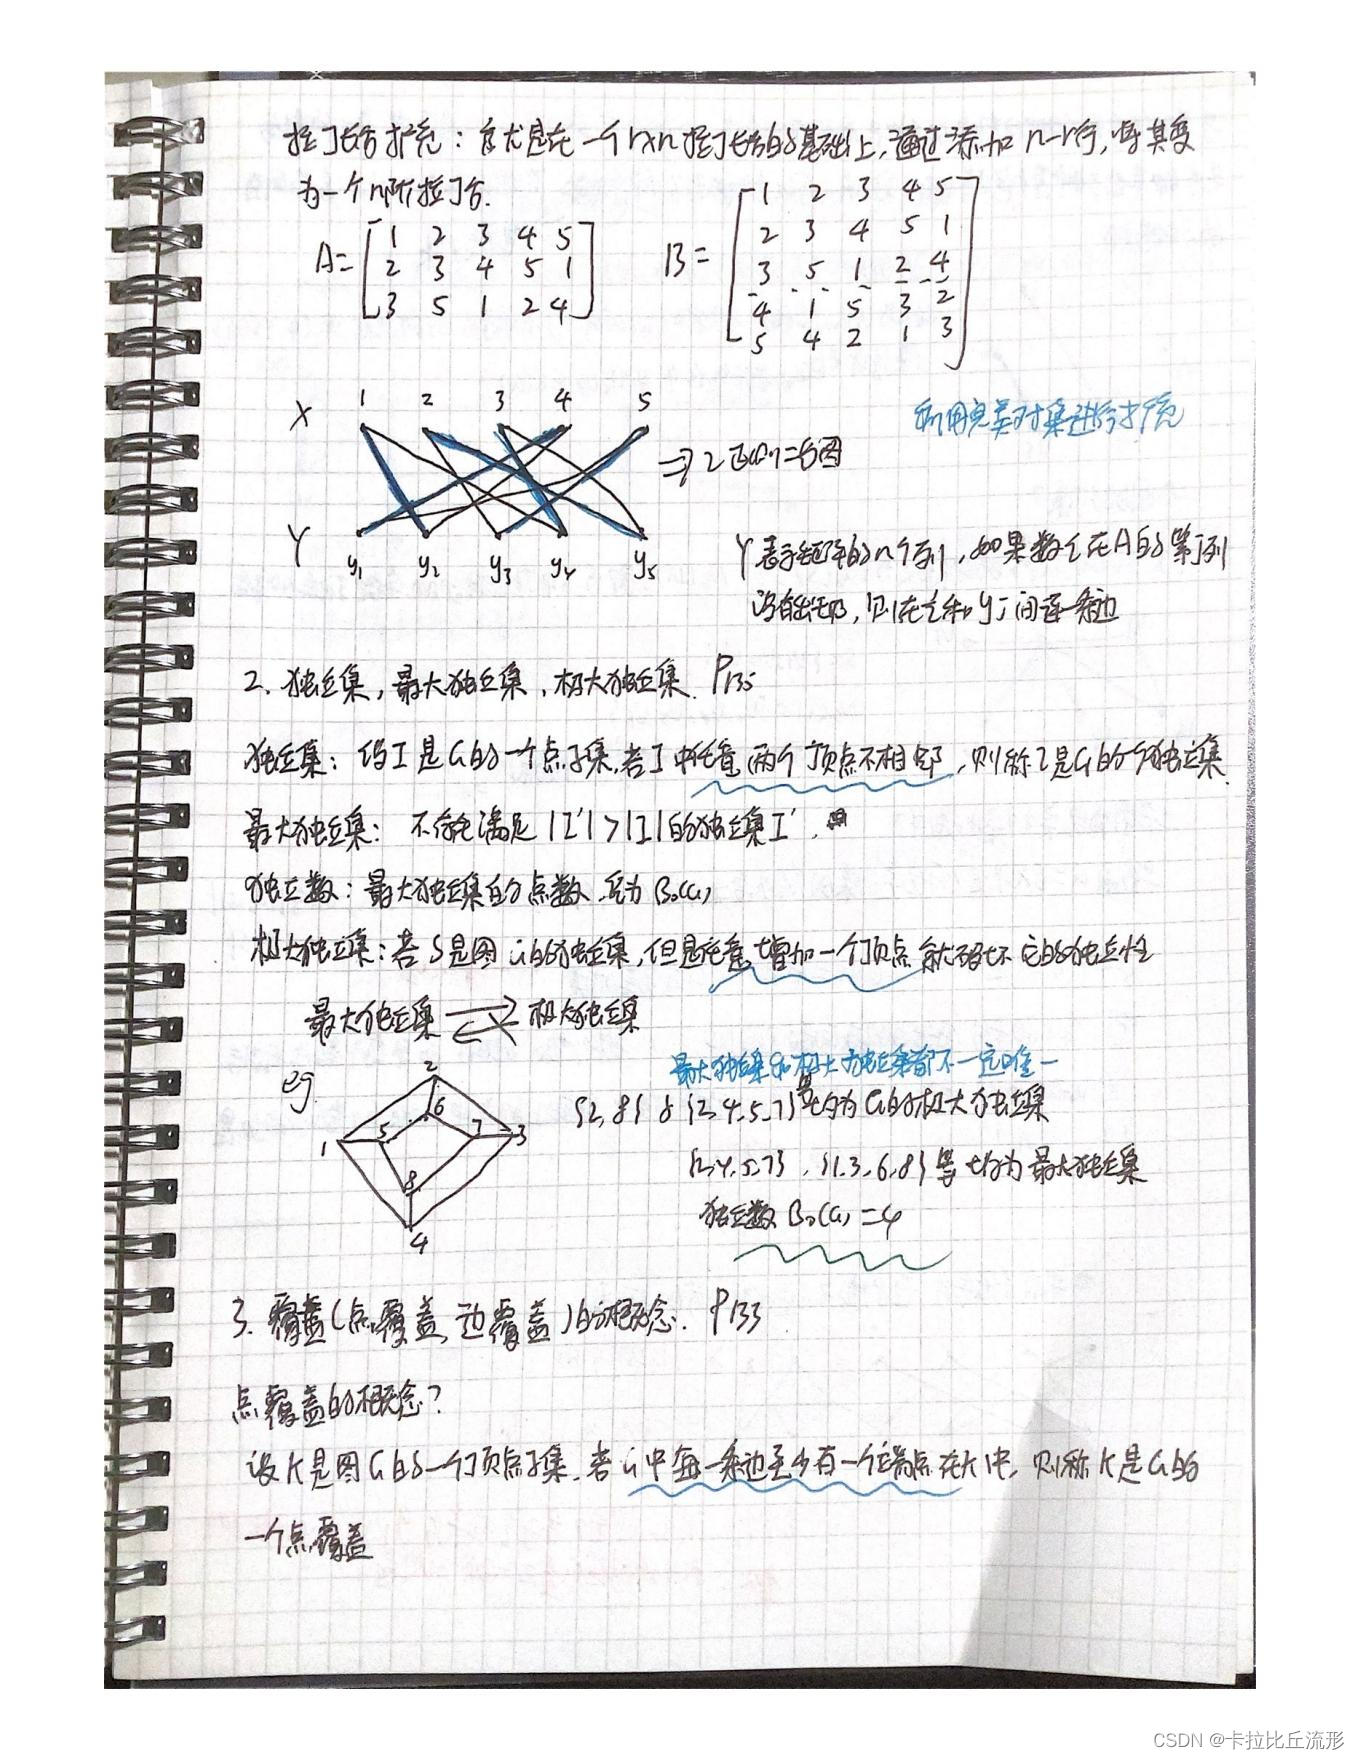 拉丁长方扩充：首尤是在一个r×n拉丁长方的基础上，通过添加n-r行，将其变
为一个n阶拉丁方.
A= 1 2 3 4 5
2 3 4 5 1
3 5 1 2 4
B= 1 2 3 4 5
2 3 4 5 1
3 5 1 2 4
4 1 5 3 2
5 4 2 1 3
X 1 2 3 4 5
利用完美对集进行扩充
⇒ 2正则二分图
Y y1 y2 y3 y4 y5
Y表示矩阵的n个列，如果数i在A的第j列
没有出现，则在i和yj间连一条边
2. 独立集，最大独立集，极大独立集. P135
独立集：设I是G的一个点子集，若I中任意两个顶点不相邻，则称I是G的一个独立集.
最大独立集：不存在满足|I'|>|I|的独立集I'.
独立数：最大独立集的点数，记为β0(G)
极大独立集：若S是图G的独立集，但是任意增加一个顶点就破坏它的独立性
最大独立集 极大独立集
eg.
最大独立集和极大独立集都不一定唯一
{2,8} 与 {2,4,5,7}等均为G的极大独立集
{2,4,5,7}，{1,3,6,8}等均为最大独立集
独立数β0(G)=4
2
6
1 5 7 3
8
4
3. 覆盖(点覆盖，边覆盖)的概念. P133
点覆盖的概念？
设K是图G的一个顶点子集，若G中每一条边至少有一个端点在K中，则称K是G的
一个点覆盖
CSDN @卡拉比丘流形